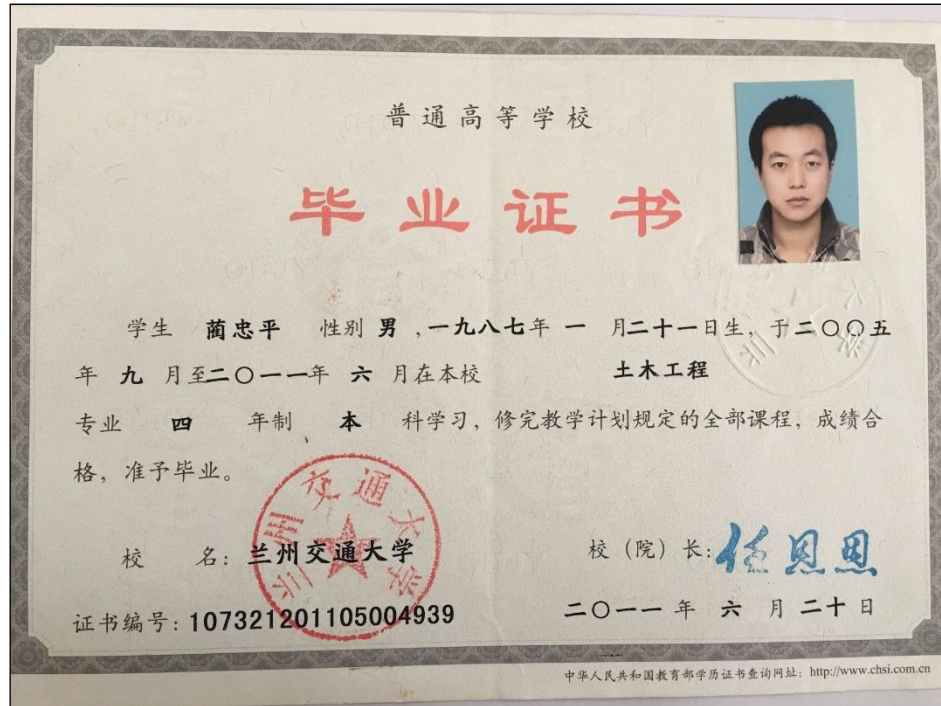 普通高等学校
毕业证书
学生 蔺忠平 性别 男 ,一九八七年 一 月二十一日生, 于二〇〇五
年 九 月至二〇一一年 六 月在本校 土木工程
专业 四 年制 本 科学习, 修完教学计划规定的全部课程, 成绩合
格, 准予毕业。
兰州交通大学
校 名: 兰州交通大学
校 (院) 长: 任恩恩
证书编号: 107321201105004939
二〇一一 年 六 月 二十日
中华人民共和国教育部学历证书查询网址: http://www.chsi.com.cn